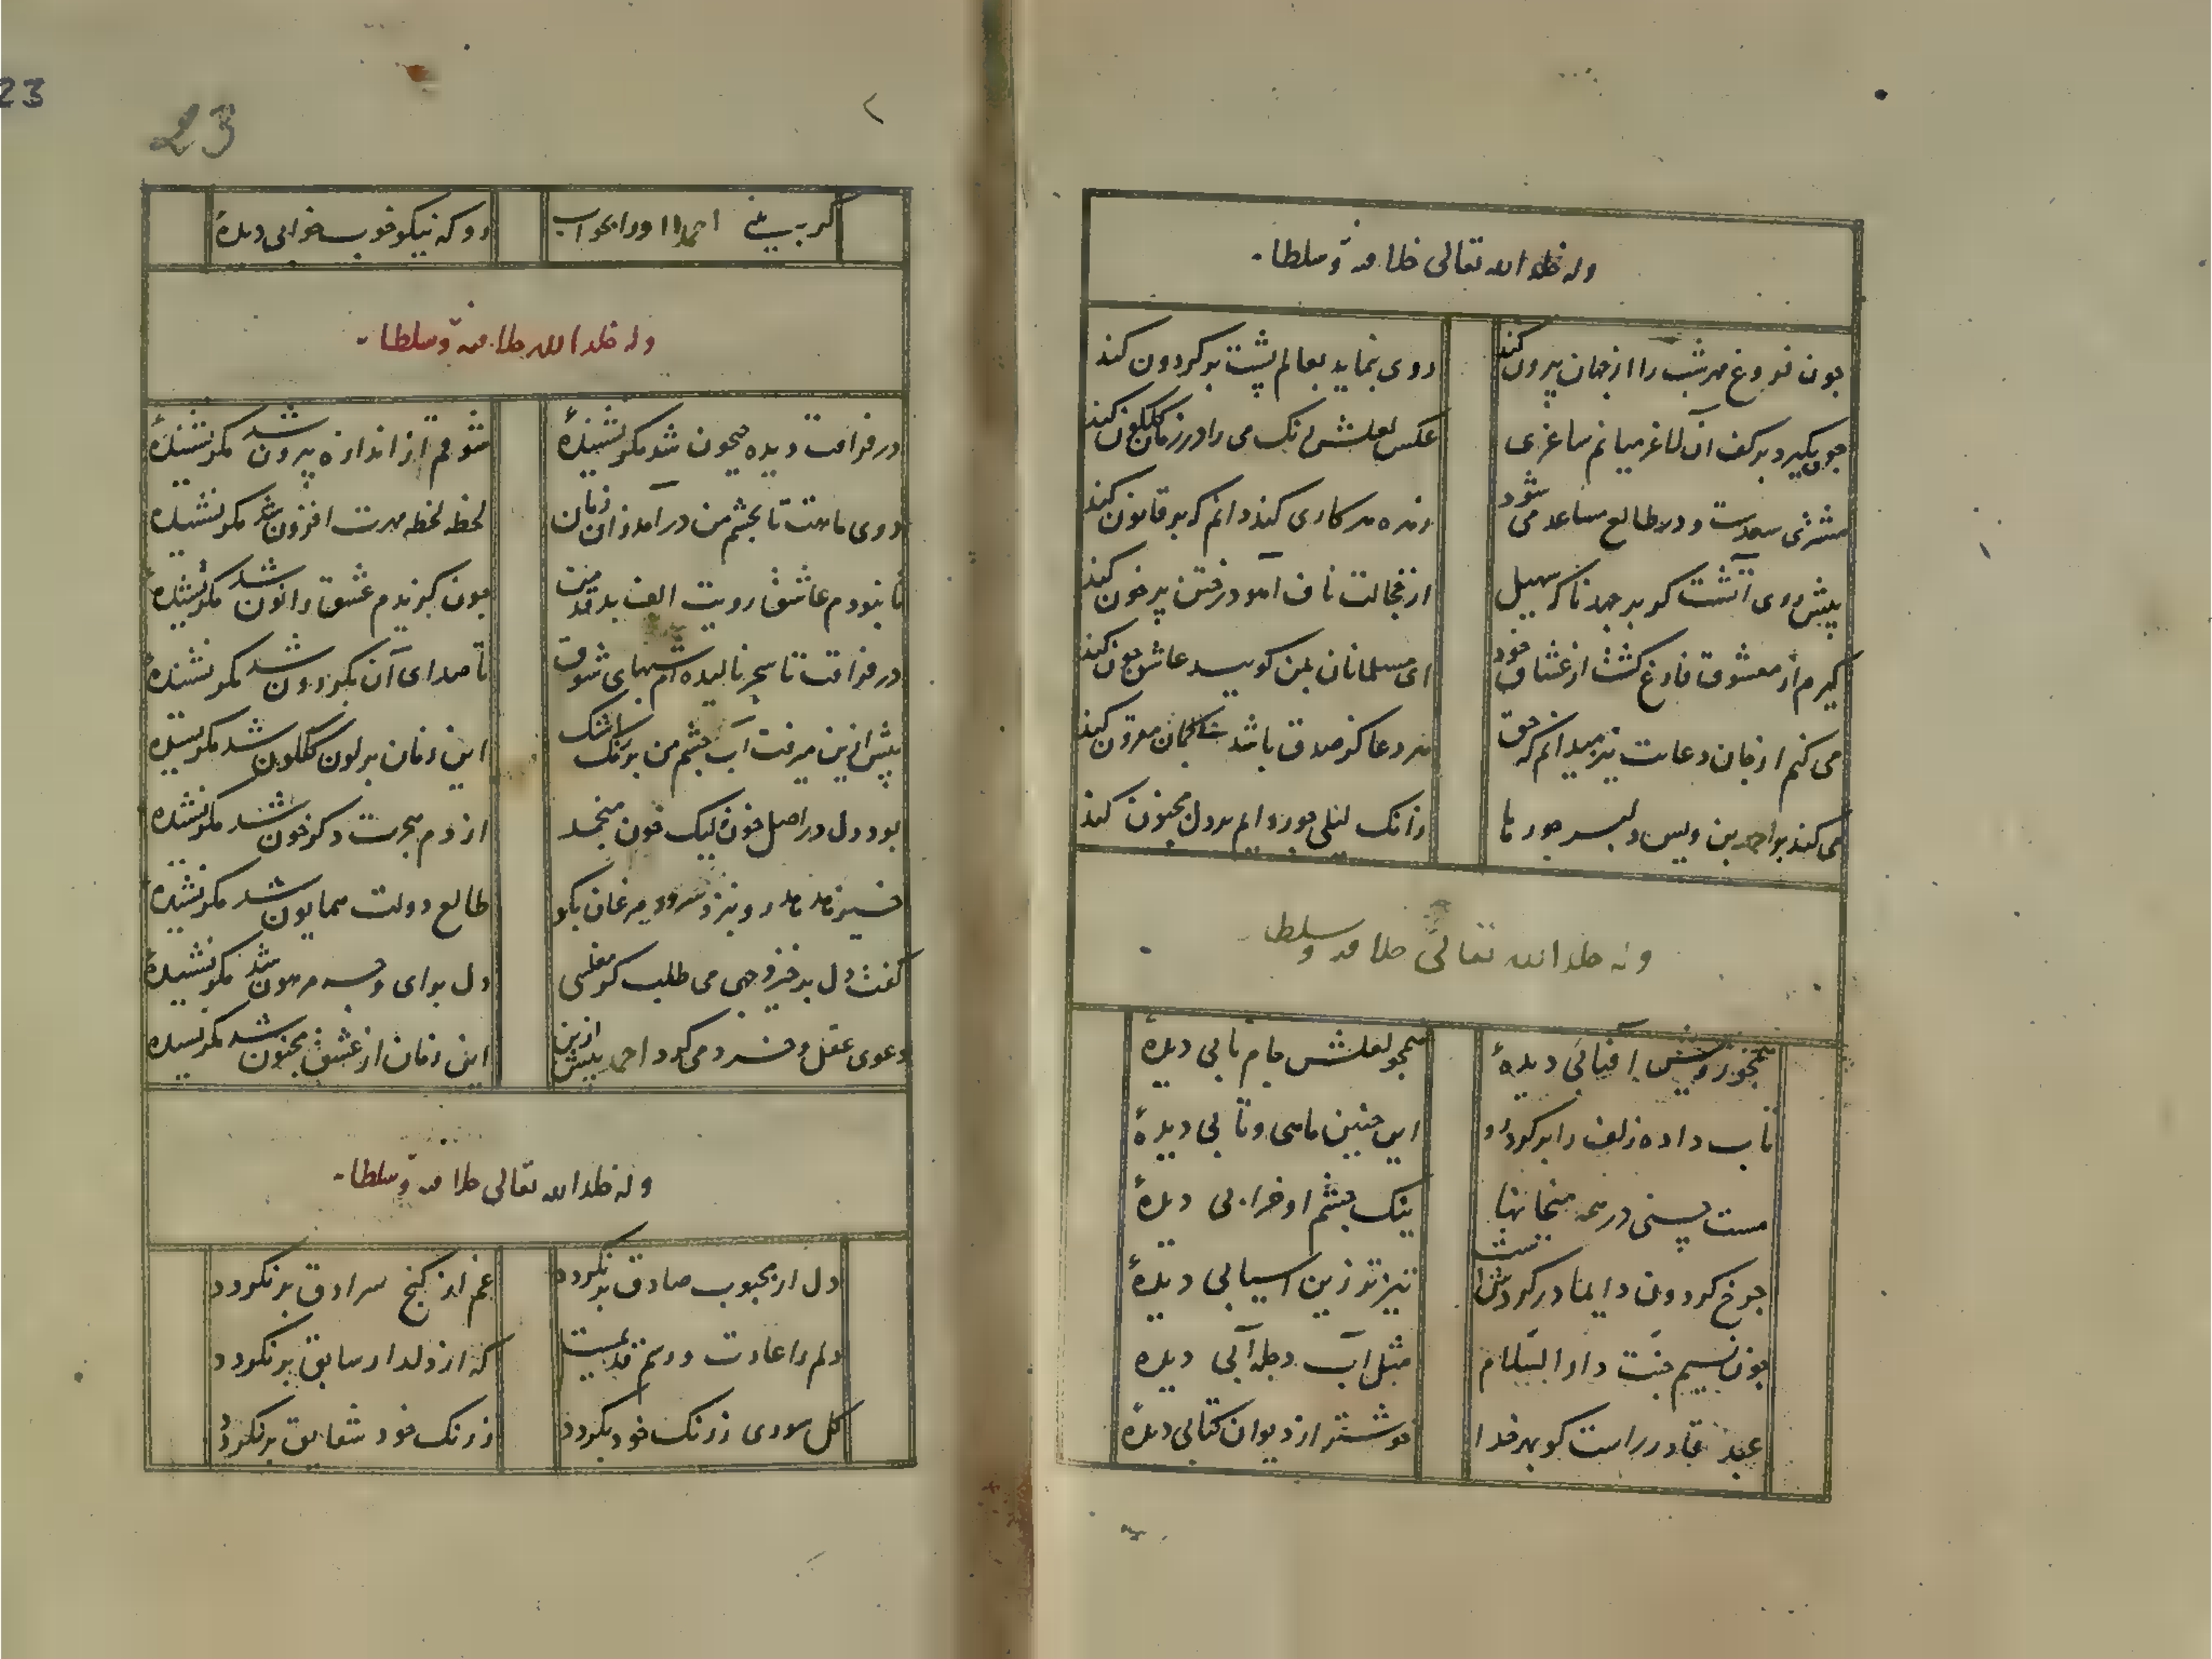 وله خلد الله تعالی خلافته وسلطا
چون فروغ مهر شب را از جهان بیرون کند
روی بنماید بعالم پشت بر کردون کند
چون بکیرد بر کف آن لاغر میانم ساغری
عکس لعلش رنک می را در زمان کلکون کند
مشتری سعدست و در طالع مساعد می شود
زهره هر کاری کند دانم که بر قانون کند
پیش روی آتشت کو بر جهد ناکه سهیل
از خجالت ناف آهو در ختن پر خون کند
کیرم از معشوق فارغ کشت از عشاق خود
ای مسلمانان بمن کویید عاشق چون کند
می کنم از جان دعایت نیز میدانم که حق
هر دعا کز صدق باشد مقرون کند
می کند بر احمد بن ویس دلبر جور تا
زانک لیلی جور دایم بر دل مجنون کند
وله خلد الله تعالی خلافته وسلطا
همچو رویش آفتابی دیدهٔ
همچو لعلش جام نابی دیدهٔ
تاب داده زلف را بر کرد او
این چنین ماهی و تابی دیدهٔ
مست هستی در همه میخانها
نیک چشم او خرابی دیدهٔ
چرخ کردون دایما در کردشست
تیزتر زین آسیابی دیدهٔ
چون نسیم جنت دار السلام
مثل آب دجله آبی دیدهٔ
عبد قادر راست کو بهر خدا
خوشتر از دیوان کتابی دیدهٔ
23
23
کر ببینی احمدا او را بخواب
رو که نیکو خوب خوابی دیدهٔ
وله خلد الله خلافته وسلطا
در فراقت دیده جیحون شد مکر نشنیدهٔ
شوقم از اندازه بیرون شد مکر نشنیدهٔ
روی ماهت تا بچشم من در آمد زان زمان
لحظه لحظه مهرت افزون شد مکر نشنیدهٔ
تا نبودم عاشق رویت الف بد قد من
چون کزیدم عشق را نون شد مکر نشنیدهٔ
در فراقت تا سحر نالیده ام شبهای شوق
تا صدای آن بکردون شد مکر نشنیدهٔ
پیش ازین میرفت آب چشم من بر رنک اشک
این زمان بر لون کلکون شد مکر نشنیدهٔ
بود دل در اصل خون لیک خون منجمد
از دم هجرت دکر خون شد مکر نشنیدهٔ
طالع دولت همایون شد مکر نشنیدهٔ
کفت دل برخیز وجهی می طلب کو مفلسی
دل برای وجه مرهون شد مکر نشنیدهٔ
دعوی عقل و خرد می کرد احمد پیش ازین
این زمان از عشق مجنون شد مکر نشنیدهٔ
وله خلد الله تعالی خلافته وسلطا
دل از محبوب صادق برنکردد
غم از کنج سرادق برنکردد
دلم را عادت و رسم قدیمست
که از دلدار سابق برنکردد
کل سوری ز رنک خود بکردد
ز رنک خود شقایق برنکردد